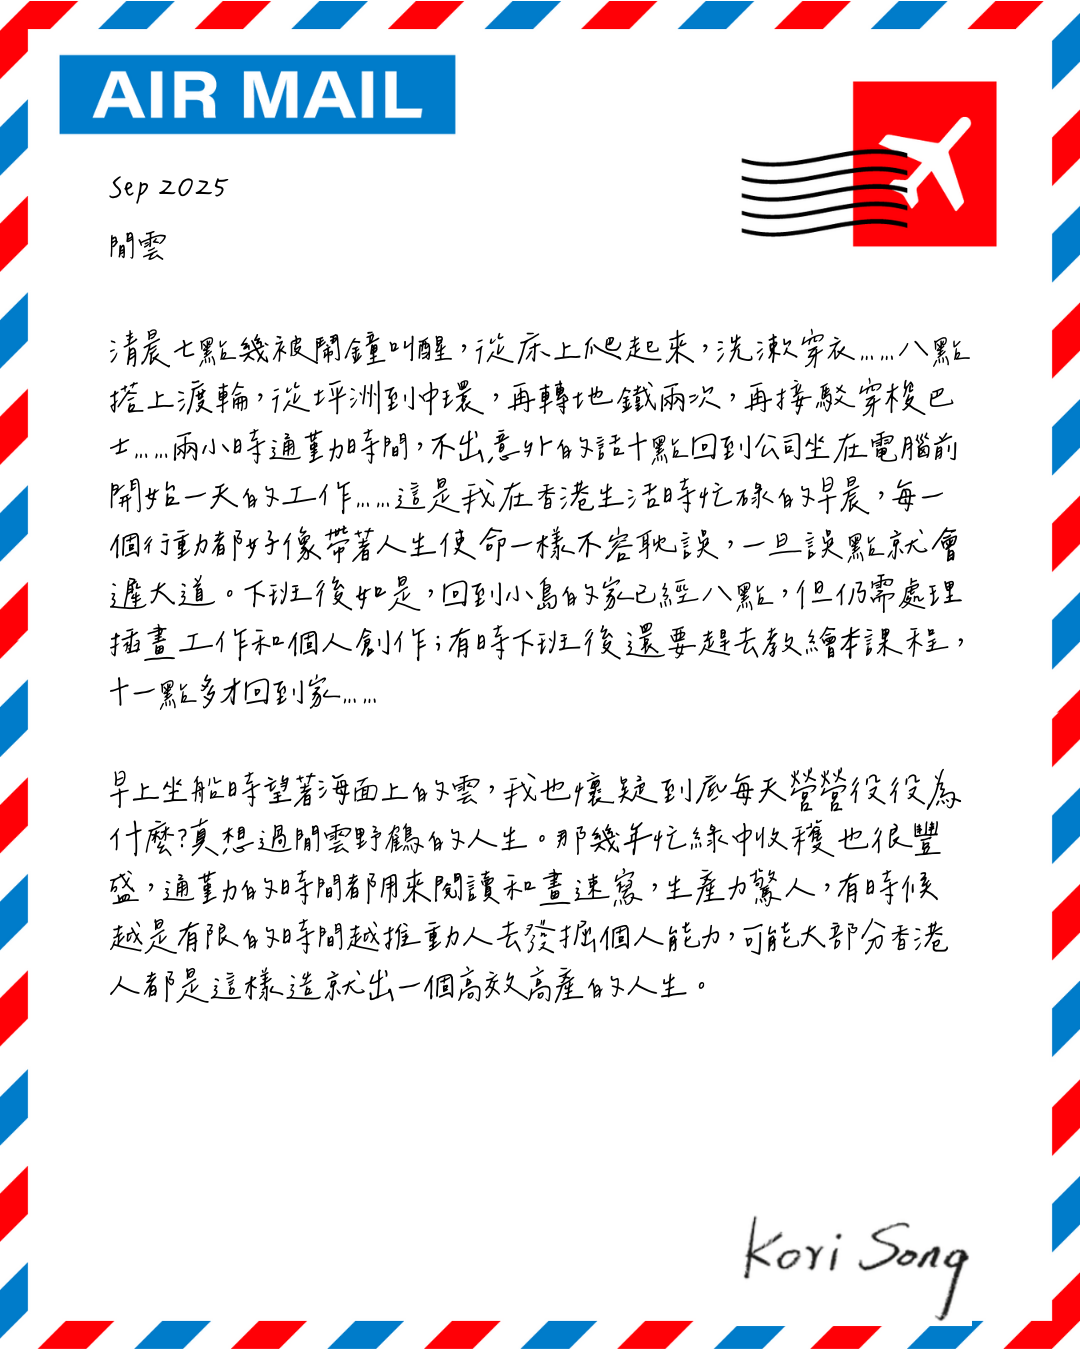 AIR MAIL
Sep 2025
閒雲
清晨七點幾被鬧鐘叫醒，從床上爬起來，洗漱穿衣……八點
搭上渡輪，從坪洲到中環，再轉地鐵兩次，再接駁穿梭巴
士……兩小時通勤時間，不出意外的話十點回到公司坐在電腦前
開始一天的工作……這是我在香港生活時忙碌的早晨，每一
個行動都好像帶著人生使命一樣不容耽誤，一旦誤點就會
遲大道。下班後如是，回到小島的家已經八點，但仍需處理
插畫工作和個人創作；有時下班後還要趕去教繪本課程，
十一點多才回到家……
早上坐船時望著海面上的雲，我也懷疑到底每天營營役役為
什麼？真想過閒雲野鶴的人生。那幾年忙綠中收穫也很豐
盛，通勤的時間都用來閱讀和畫速寫，生產力驚人，有時候
越是有限的時間越推動人去發掘個人能力，可能大部分香港
人都是這樣造就出一個高效高產的人生。
Kori Song